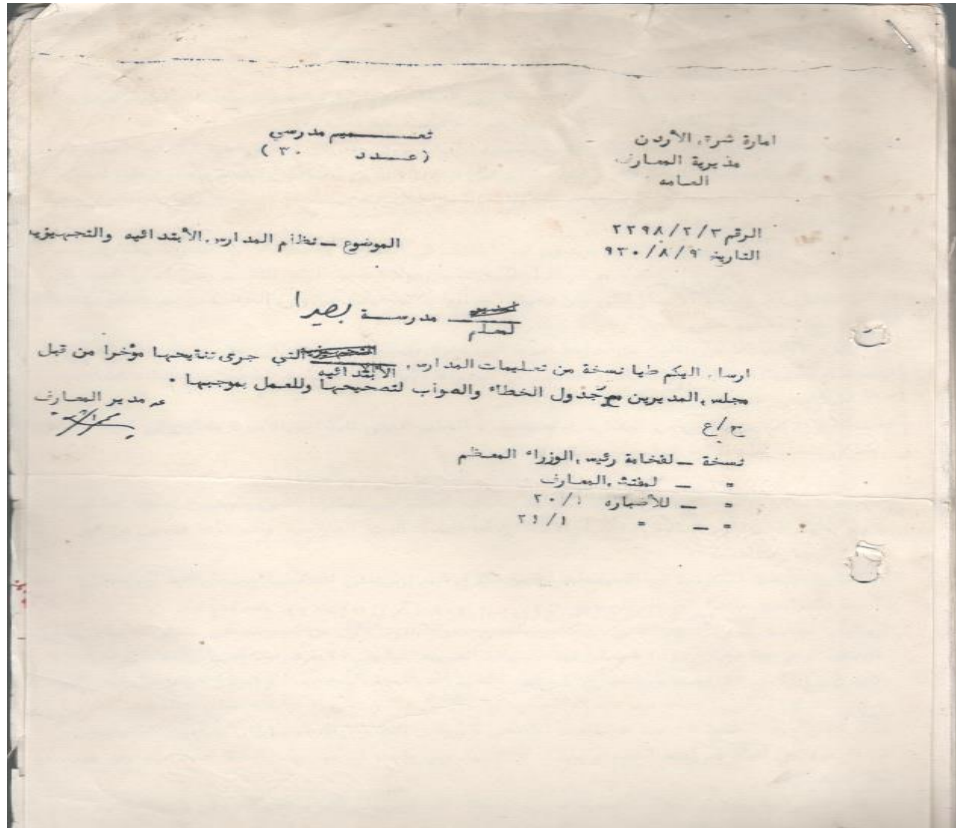 امارة شرق الأردن
مديرية المعارف
العامه
تعـــميم مدرسي
(عـــدد ٣٠)
الرقم ٢٢٩٨/٢/٣
التاريخ ٩٣٠/٨/٩
الموضوع ــ نظام المدارس الأبتدائيه والتجهيزيه
لمعلم مدرسـة بصيرا
ارسل اليكم طيا نسخة من تعليمات المدارس الأبتدائيه التي جرى تنقيحها مؤخرا من قبل
مجلس المديرين مع جذول الخطاء والصواب لتصحيحها وللعمل بموجبها ٠
عه مدير المعارف
ح/ع
نسخة ــ لفخامة رئيس الوزراء المعظم
" ــ لمفتش المعارف
" ــ للأضباره ٢٠/١
" ــ "